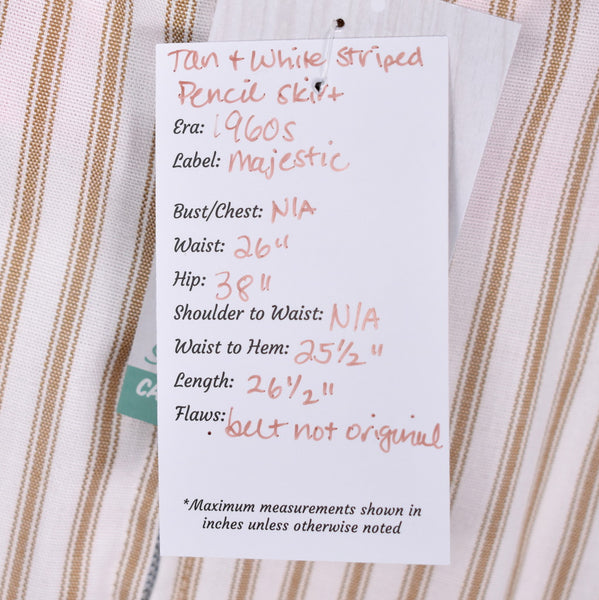 Tan + White Striped
Pencil Skirt
Era: 1960s
Label: majestic
Bust/Chest: N/A
Waist: 26"
Hip: 38"
Shoulder to Waist: N/A
Waist to Hem: 25½"
Length: 26½"
Flaws: belt not original
*Maximum measurements shown in
inches unless otherwise noted